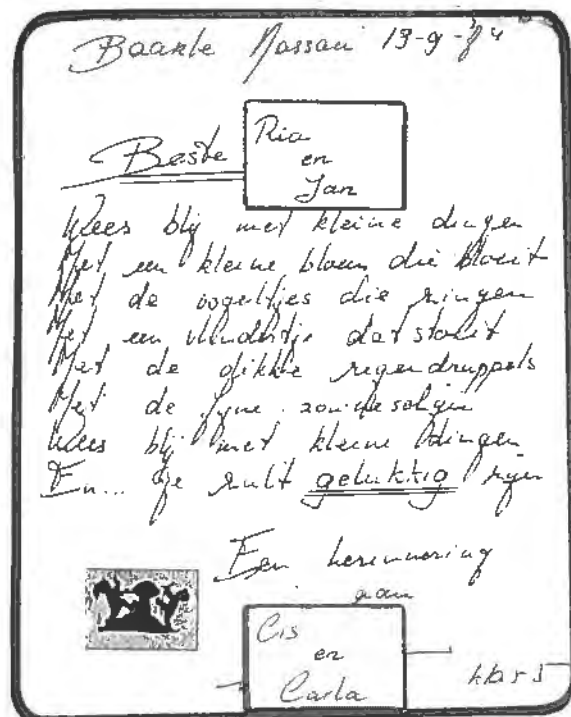 Baarle Nassau 13-9-84
Beste
Ria
en
Jan
Wees blij met kleine dingen
Met een kleine bloem die bloeit
Met de vogeltjes die zingen
Met een vlindertje dat stoeit
Met de dikke regendruppels
Met de fijne zonneschijn
Wees blij met kleine dingen
En... je zult gelukkig zijn
Een herinnering
aan
Cis
en
Carla
klas 5